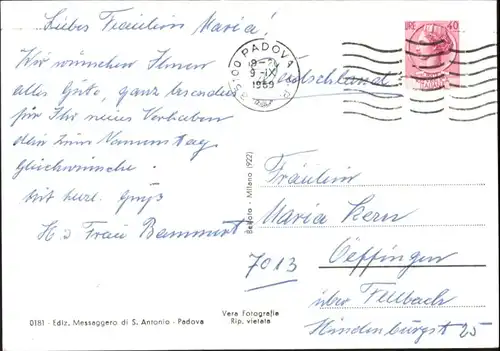 Liebes Fräulein Maria!
Wir wünschen Ihnen
alles Gute, ganz besonders
für Ihr neues Vorhaben
dem zum Namenstag
Glückwünsche.
Mit herzl. Grüß
H. u Frau Bammert
LIRE 40
35100 PADOVA
18-
9-IX
1969
Deutschland
Fräulein
Maria Kern
7013 Oeffingen
über Fellbach
Hindenburgst 25
Bekoto - Milano (922)
0181 - Ediz. Messaggero di S. Antonio - Padova
Vera Fotografia
Rip. vietata